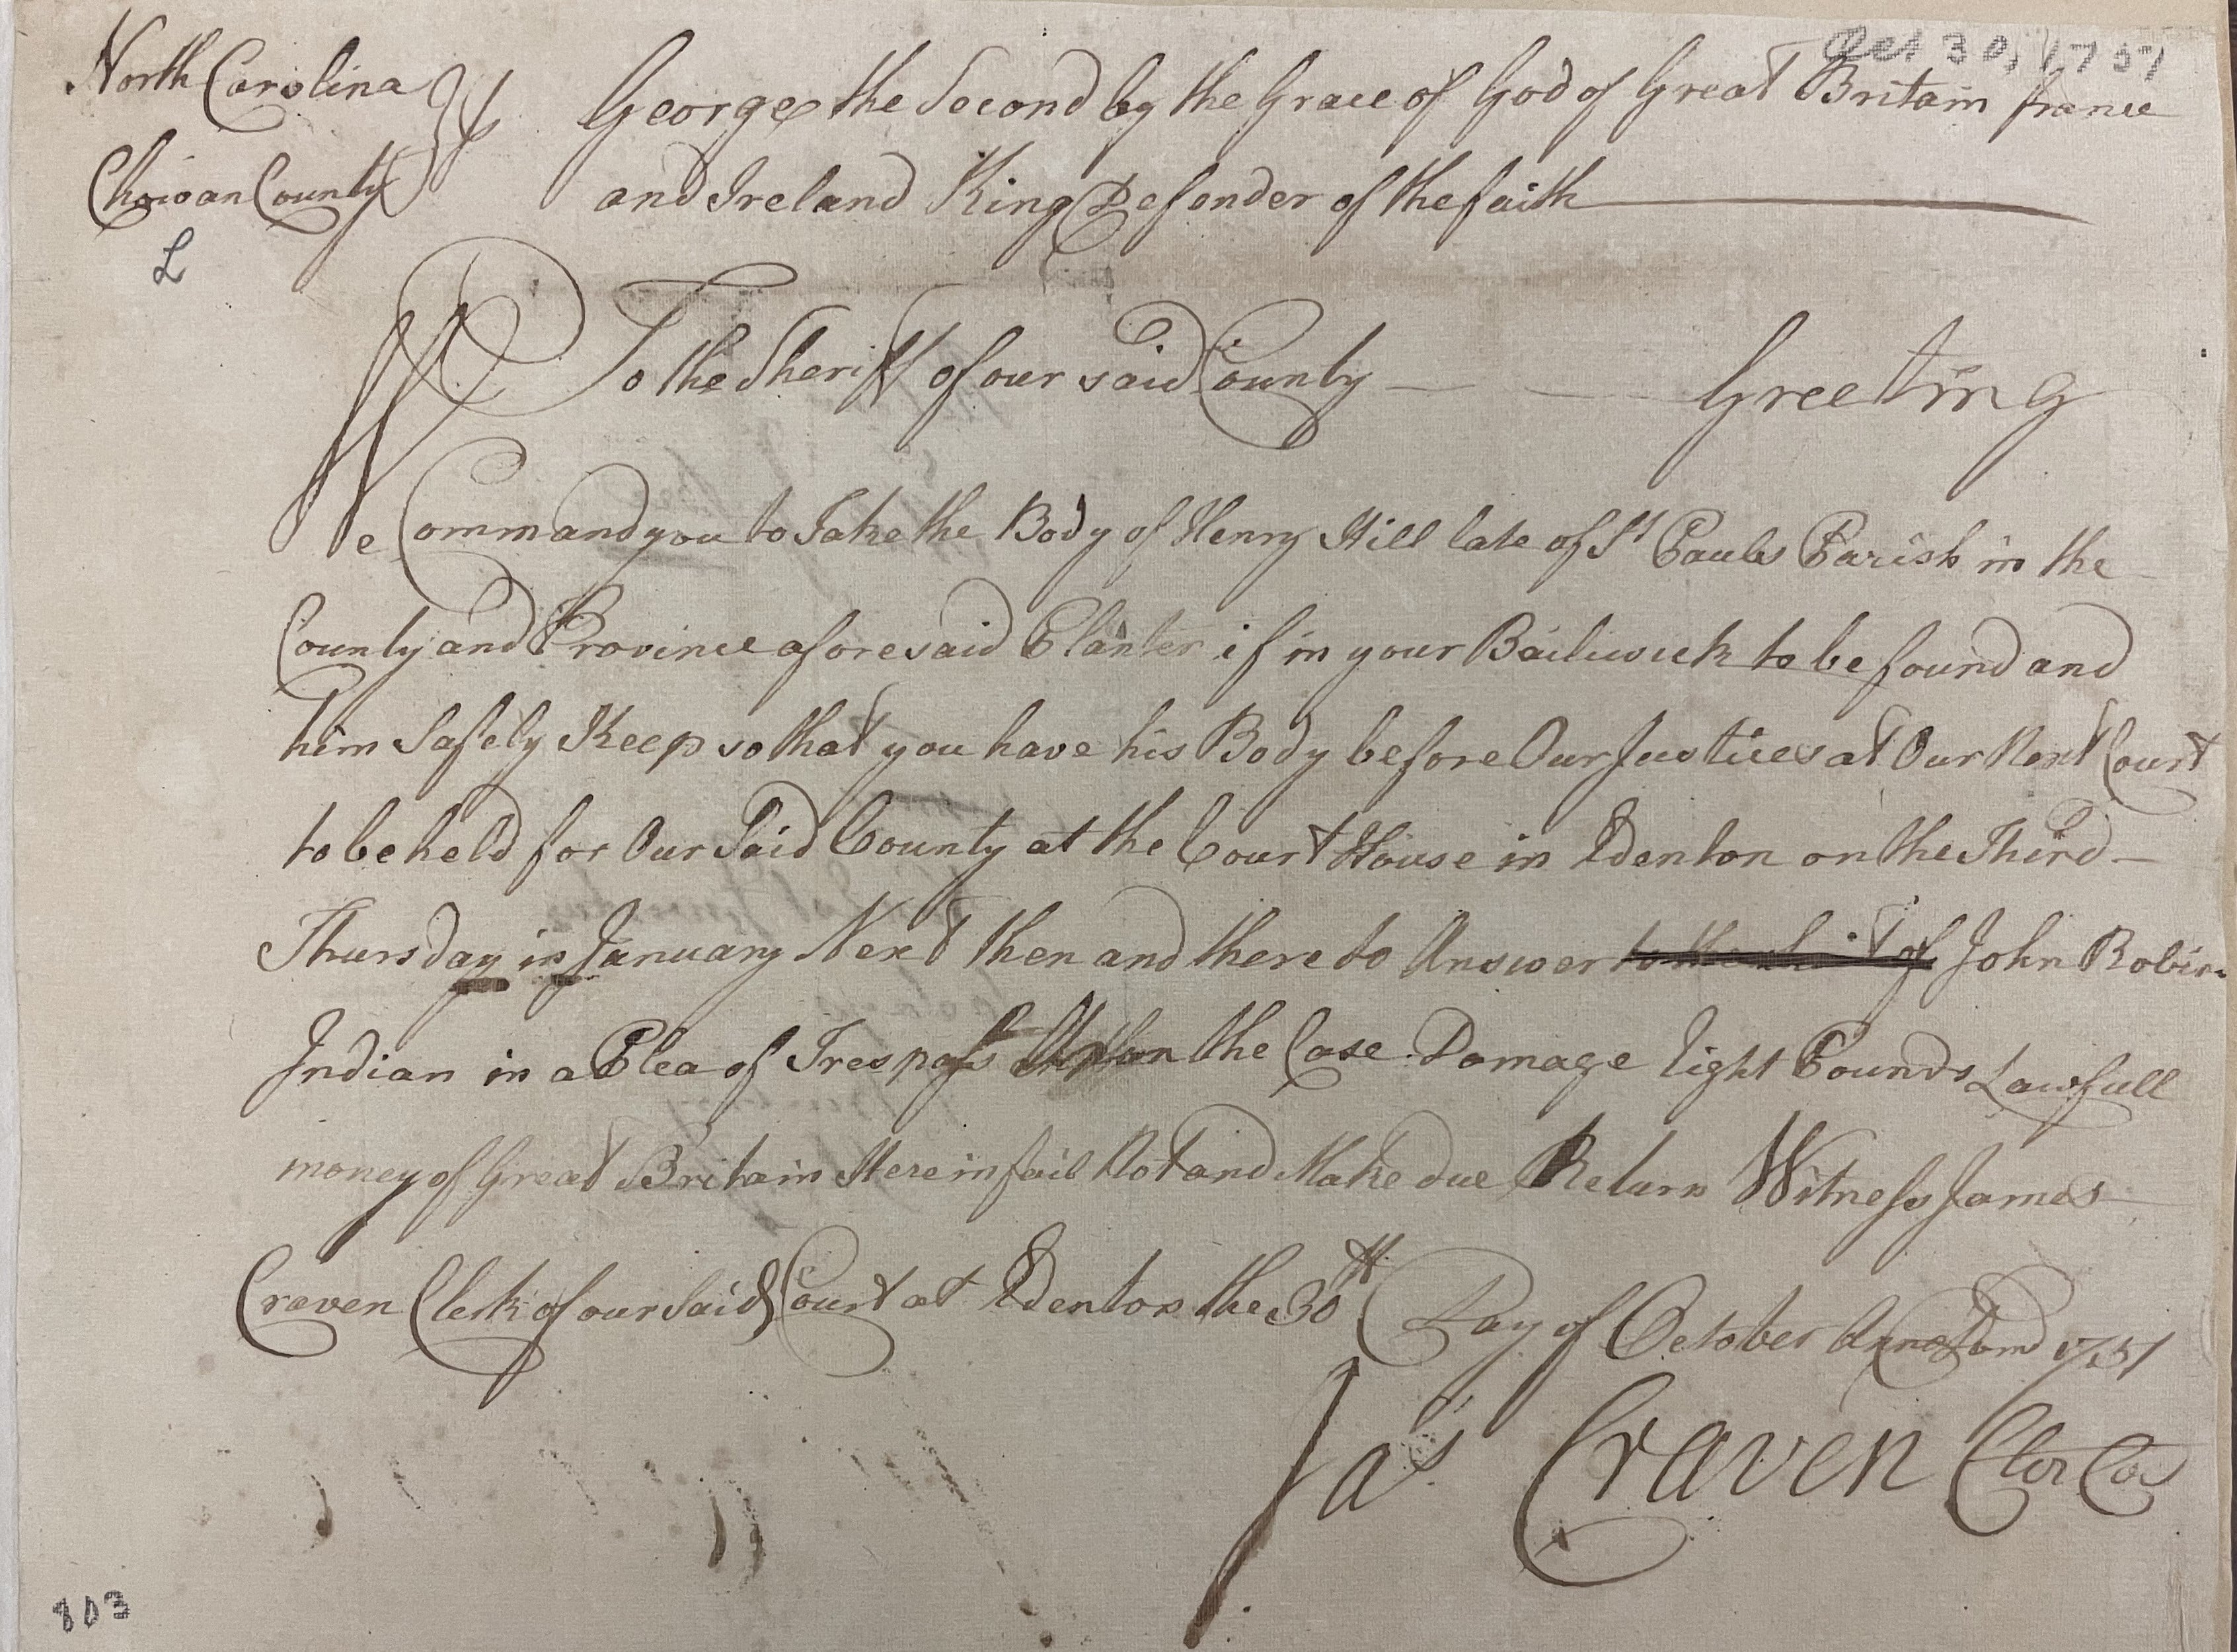 Oct 30, 1751
North Carolina
Chowan County
L
George the Second by the Grace of God of Great Britain france
and Ireland King Defender of the faith
To the Sheriff of our said County Greeting
We Command you to Take the Body of Henry Hill late of St Pauls Parish in the
County and Province aforesaid Planter if in your Bailiwick to be found and
him Safely Keep so that you have his Body before Our Justices at Our Next Court
to be held for Our Said County at the Court House in Edenton on the Third
Thursday in January Next then and there to Answer to the suit of John Robin
Indian in a Plea of Trespass Upon the Case Damage Eight Pounds Lawfull
money of Great Britain Herein fail Not and Make due Return Witness James
Craven Clerk of our Said Court at Edenton the 30th Day of October Anno Dom 1751
Jas Craven Cler Co
803